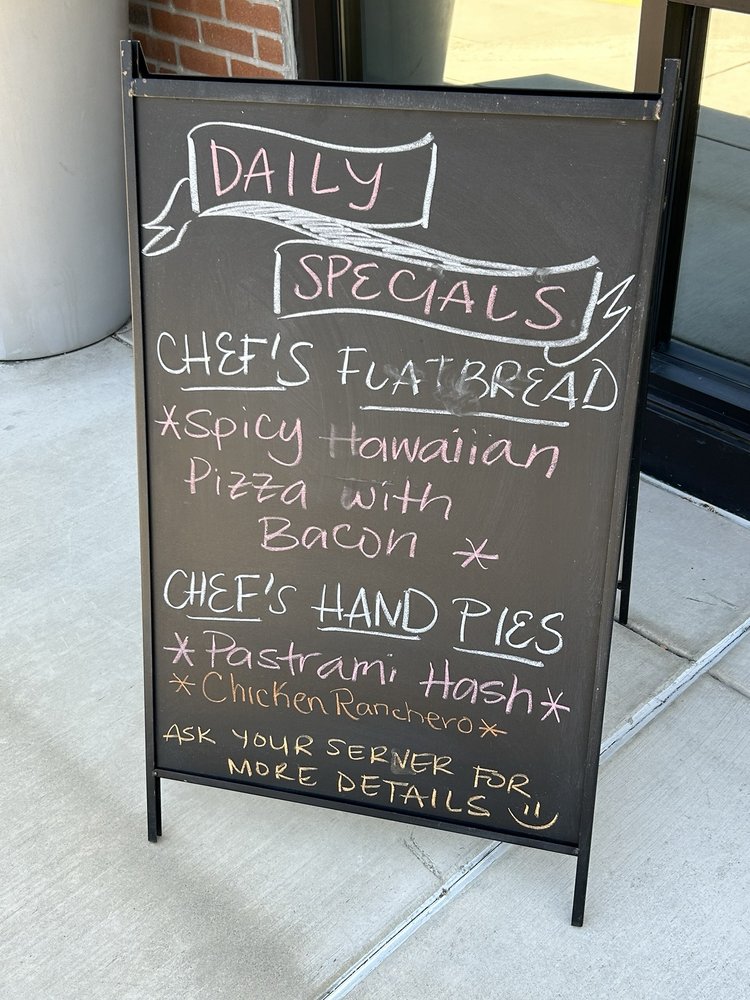 DAILY
SPECIALS
CHEF'S FLATBREAD
*Spicy Hawaiian
Pizza with
Bacon *
CHEF'S HAND PIES
*Pastrami Hash*
*Chicken Ranchero*
ASK YOUR SERVER FOR
MORE DETAILS